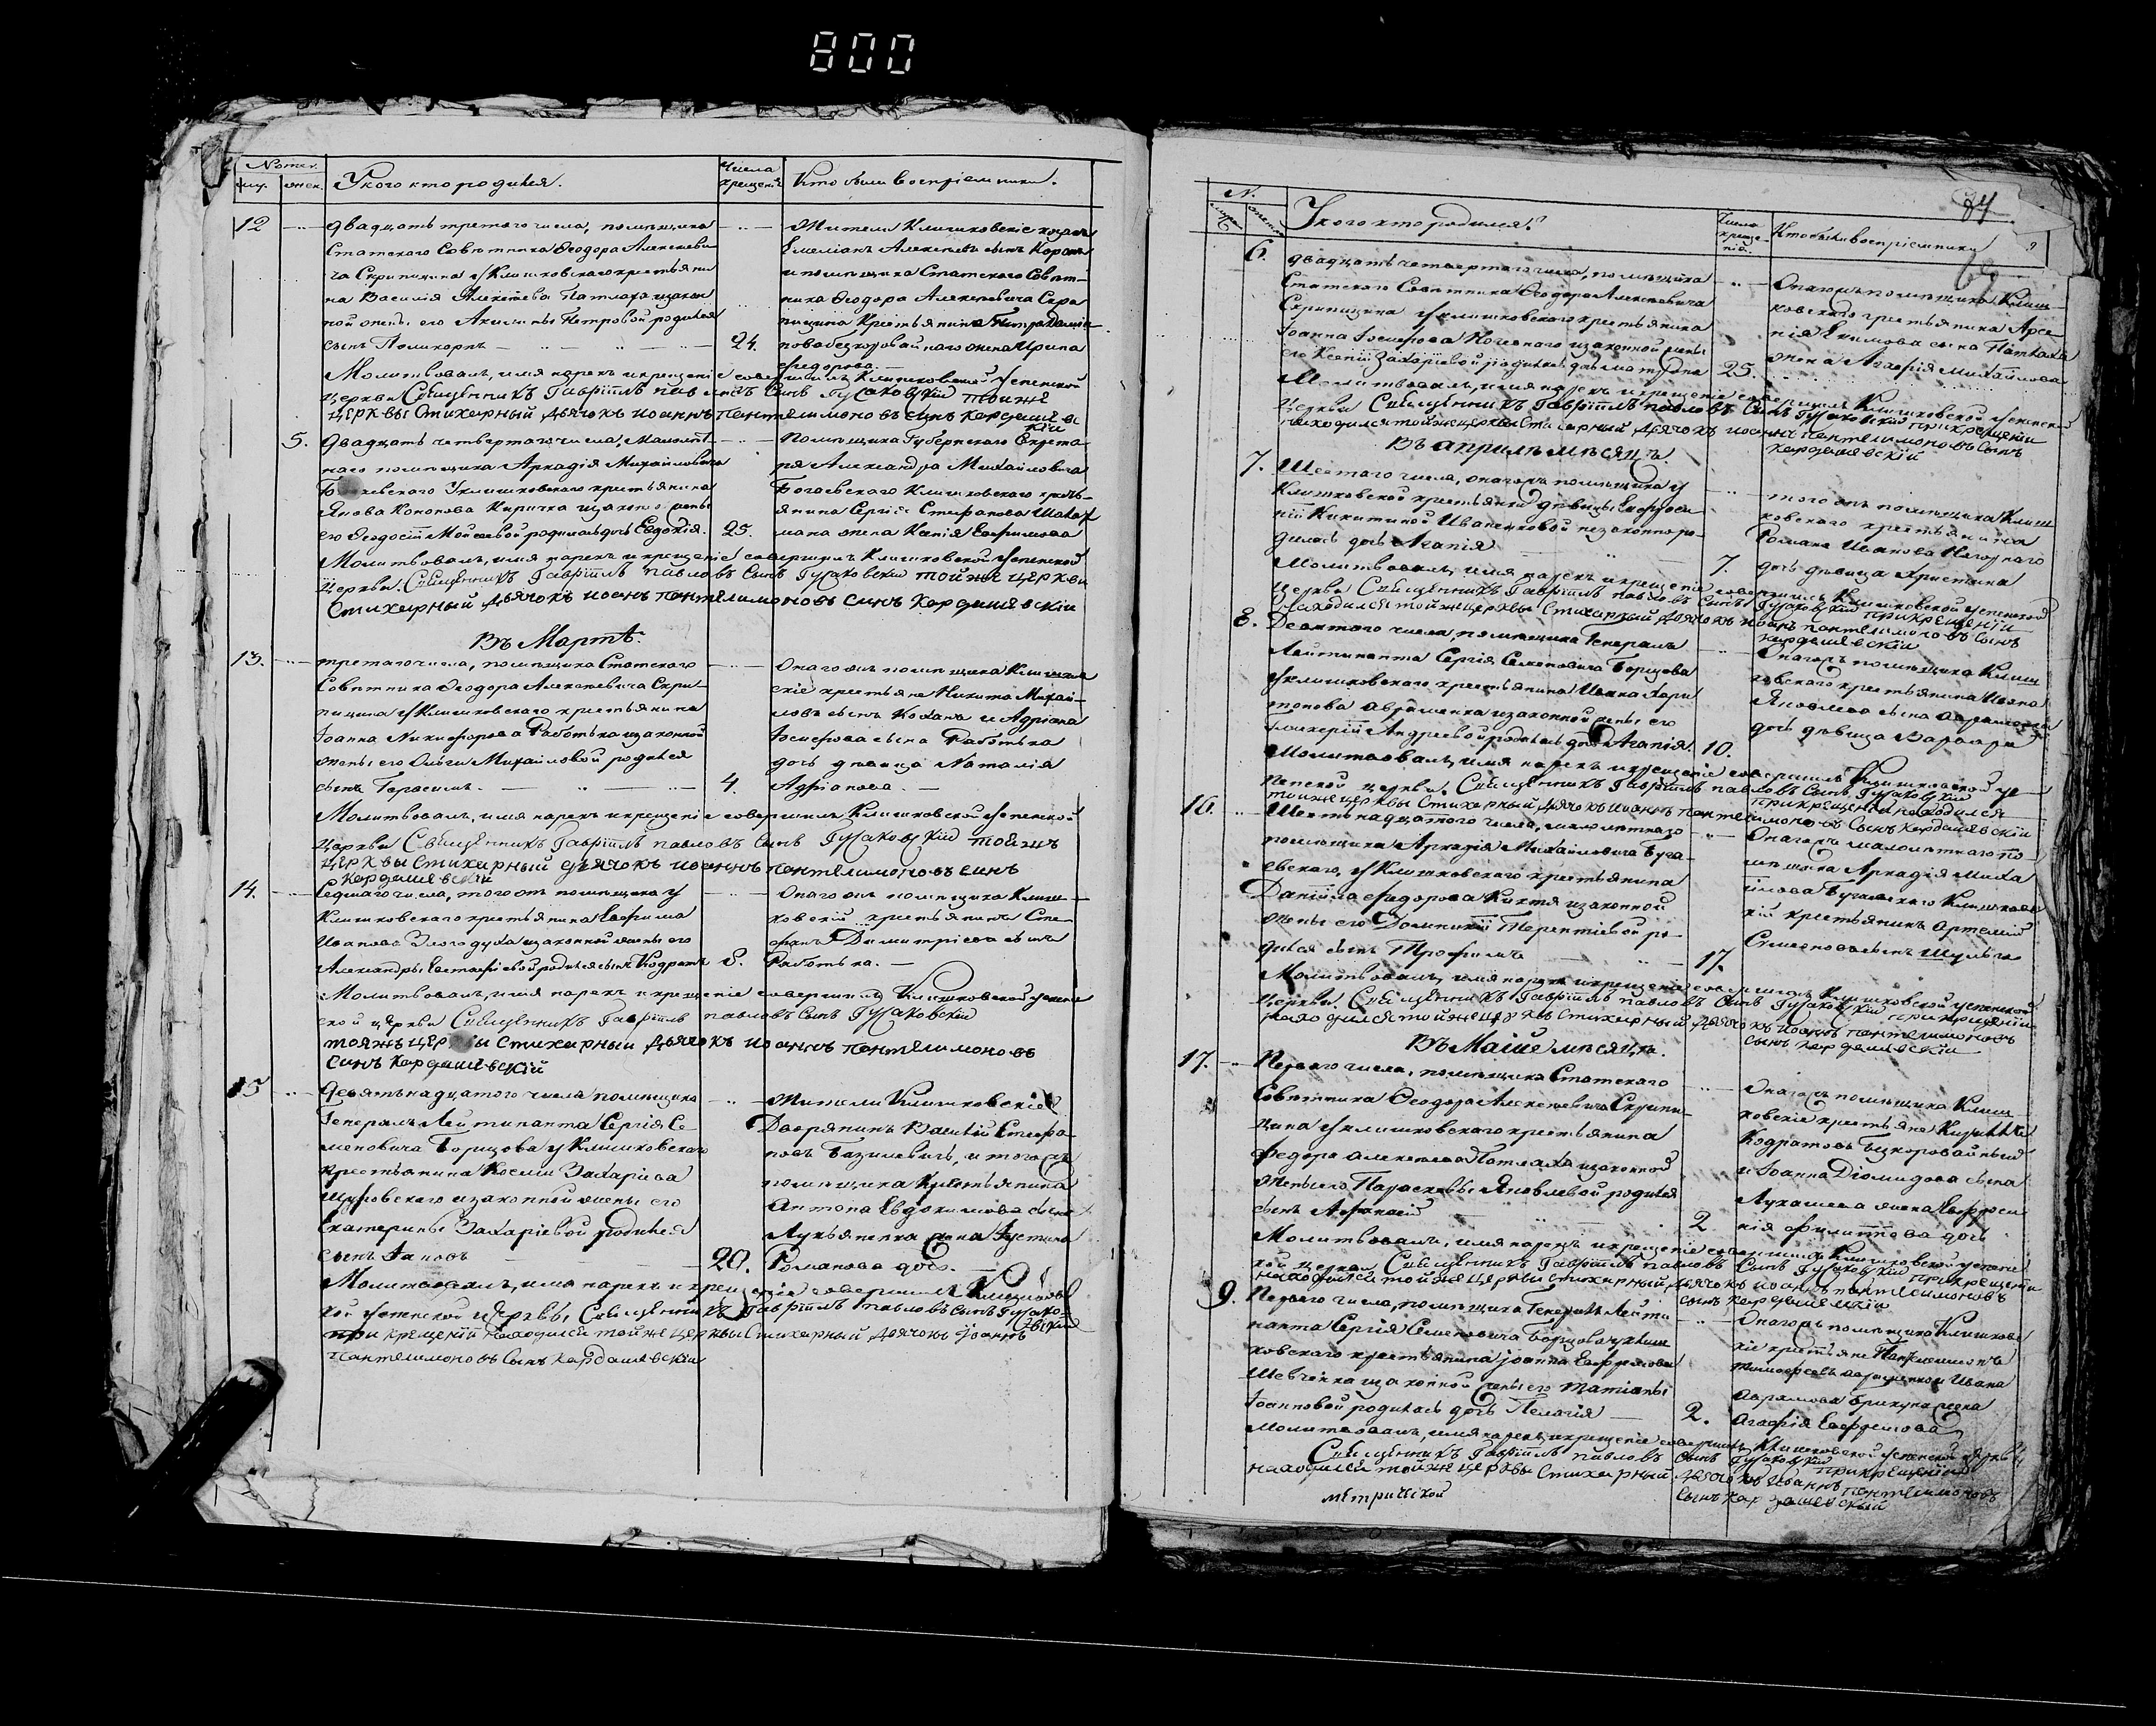 800
Номер.
муж. женск. У кого кто родился. Числа крещенія Кто были воспріемники.
12 двадцать третаго числа, помѣщика
Статскаго Совѣтника Ѳеодора Алексѣеви
ча Скрипицина у Клишковскаго крестьяни
на Василія Алексѣева Патлаха изакон
ной жены его Акилины Петровой родился
сынъ Поликарпъ 24.
Жители Клишковскіе козакъ
Емеліанъ Алексѣевъ сынъ
и помѣщика Статскаго Совѣт-
ника Ѳеодора Алексѣевича Скри
пицина крестьянина
жена Ирина
Федорова.
Молитвовалъ, имя нарекъ и крещеніе совершилъ Клишковской Успенской
церкви Священникъ Гавріилъ павловъ Сынъ Гусаковскій тойже
церквы Стихарный дьячокъ иоаннъ пантелимоновъ сынъ кардашевс
кій
5. двадцать четвертаго числа, Малолѣт-
наго помѣщика Аркадія Михайловича
Укл​ишковскаго крестьянина
Якова Кононова Киричка изаконо жены
его Ѳеодосіи Мойсеевой родилась дочь Евдокія. 25.
Помѣщика Губернскаго Секрета-
ря Александра Михайловича
Богаевскаго Клишковскаго кресть-
янина Сергія Стефанова
жена Ксенія Евфимова
Молитвовалъ, имя нарекъ и крещеніе совершилъ Клишковской Успенской
Церкви. Священникъ Гавріилъ павловъ Сынъ Гусаковскій тойже церкви
Стихарный дьячокъ иоанъ пантелимоновъ синъ Кардашевскій
Въ Мартѣ.
13. третаго числа, помѣщика Статскаго
Совѣтника Ѳеодора Алексѣевича Скри-
пицина у Клишковскаго крестьянина
Іоанна Никифорова Работька изаконной
жены его Ольги Михайловой родился
сынъ Герасимъ. 4.
Онаго жъ помѣщика Клишков
скіе крестьяне Никита Михай-
ловъ сынъ Коханъ и Адріана
Іосифова сына Работька
дочь дѣвица Наталія
Адріанова.
Молитвовалъ, имя нарекъ и крещеніе совершилъ Клишковской Успенской
Церкви Священникъ Гавріилъ павловъ Сынъ Гусаковскій тойжъ
церквы Стихарный дьячокъ иоаннъ пантелимоновъ синъ
Кардашевскій
14. Седмаго числа, того жъ помѣщика у
Клишковскаго крестьянина Евфима
Иванова Злогодуха изаконной жены его
Александры Евстафіевой родился сынъ Кодратъ 8.
Онаго жъ помѣщика Клиш-
ковскій крестьянинъ Сте-
фанъ Димитріевъ сынъ
Работька.
Молитвовалъ, имя нарекъ и крещеніе совершилъ Клишковской успен
ской церкви Священникъ Гавріилъ павловъ Сынъ Гусаковскій
тояжъ церквы Стихарный дьячокъ иоаннъ пантелимоновъ
синъ Кардашевскій
15 девятьнадцатого числа помѣщика
Генералъ Лейтинанта Сергія Се
меновича Борщова у Клишковскаго
крестьянина Косми Захаріева
Щуровскаго изаконной жены его
Екатерины Захаріевой родился
сынъ Іаковъ 20.
Жители Клишковскіе
Дворянинъ Василій Стефа-
новъ Базилевичъ, и того жъ
помѣщика крестьянина
Антона Евдокимова сына
Лукьяненка жена Іустина
Романова дочь.
Молитвовалъ, имя нарекъ и крещеніе совершилъ Клишковс
кой Успенской церквы Священникъ Гавріилъ павловъ сынъ Гусако-
вскій
при крещеніи находился тойже церквы Стихарный дьячокъ іоаннъ
Пантелимоновъ Сынъ кардашевскій
84
69
N.
У кого кто родился? Числа креще-нія. Кто были воспріемники?
6. двадцать четвертаго числа, помѣщика
Статскаго Совѣтника Ѳеодора Алексѣевича
Скрипицина у клишковскаго крестьянина
Іоанна Іосифова изаконной жены
его Ксеніи Захаріевой родилась дочь матрона 25.
Онагожъ помѣщика Клиш-
ковскаго крестьянина Арсе-
нія Екимова сына Патлаха
жена Агафія Михайлова
Молитвовалъ, имя нарекъ и крещеніе совершилъ Клишковской Успенской
Церкви Священникъ Гавріилъ павловъ Сынъ Гусаковскій при крещеніи
находился тойже церквы Стихарный дьячокъ иоанъ пантелимоновъ Сынъ
кардашевскій
Въ априлѣ мѣсяцѣ.
7. Шестаго числа, онагожъ помѣщика у
Клишковской крестьянки дѣвицы Евфроси
ніи Никитиной Иваненковой незаконноро-
дилась дочь Агапія 7.
того жъ помѣщика Клиш
ковскаго крестьянина
Романа Иванова
дочь дѣвица Христина
Молитвовалъ, имя нарекъ и крещеніе совершилъ Клишковской Успенской
Церкви Священникъ Гавріилъ павловъ Сынъ Гусаковскій при крещеніи
находился тойже церквы Стихарный дьячокъ иоанъ пантелимоновъ Сынъ
кардашевскій
8. Десятого числа, помѣщика Генералъ
Лейтинанта Сергія Семеновича Борщова
у клишковскаго крестьянина Ивана Хари
тонова Авраменка изаконной жены его
Гликеріи Андреевой родилась дочь Агапія 10.
Онагожъ помѣщика Клиш
ковскаго крестьянина Ивана
Яковлева сына Авраменка
дочь дѣвица Варвара
Молитвовалъ, имя нарекъ и крещеніе совершилъ Клишковской Ус-
пенской церкви. Священникъ Гавріилъ павловъ Сынъ Гусаковскій
при крещеніи находился
тойже церквы Стихарный дьячокъ иоанъ пантелимоновъ Сынъ кардашевскій
16. Шестьнадцатого числа, малолѣтнаго
помѣщика Аркадія Михайловича Буга-
евскаго, у Клишковскаго крестьянина
Даніила Федорова Кихтя изаконной
жены его Домникіи Терентіевой ро-
дился сынъ Трофимъ 17.
Онагожъ малолѣтнаго по
мѣщика Аркадія Миха
йлова Бугаевскаго Клишковс
кій крестьянинъ Артемій
Симеоновъ сынъ Шульга
Молитвовалъ, имя нарекъ и крещеніе совершилъ Клишковской Успенской
Церкви. Священникъ Гавріилъ павловъ Сынъ Гусаковскій при крещеніи
находился тойже церквы Стихарный дьячокъ иоанъ пантелимоновъ
сынъ кардашевскій
Въ Маіѣ мѣсяцѣ.
17. Перваго числа, помѣщика Статскаго
Совѣтника Ѳеодора Алексѣевича Скрипи-
цина у клишковскаго крестьянина
Федора Алексѣева Патлаха изаконной
жены его Параскевы Яковлевой родился
сынъ Афанасій 2
Онагожъ помѣщика Клиш-
ковскіе крестьяне Кириллъ
Кодратовъ Безкоровайный
и Іоанна Діомидова сына
Лукашева жена Евфроси
нія Филиппова дочь
Молитвовалъ, имя нарекъ и крещеніе совершилъ Клишковской успенс
кой церкви Священникъ Гавріилъ павловъ Сынъ Гусаковскій при крещеніи
находился тойже церквы стихарный дьячокъ иоанъ пантелимоновъ
сынъ кардашевскій
9. Перваго числа, помѣщика Генералъ Лейти
нанта Сергія Семеновича Борщова у клиш
ковскаго крестьянина іоанна Евфимова
Шевченка изаконной жены его татіаны
Іоанновой родилась дочь Пелагія 2.
Онагожъ помѣщика Клишковс
кіе крестьяне Пантелимонъ
Тимофеевъ Авраменко и Ивана
Аврамова Брикуна жена
Агафія Евфимова
Молитвовалъ, имя нарекъ и крещеніе совершилъ Клишковской Успенской церкви
Священникъ Гавріилъ павловъ Сынъ Гусаковскій при крещеніи
находился тойже церквы Стихарный дьячокъ иоаннъ пантелимоновъ
сынъ кардашевскій
метрической